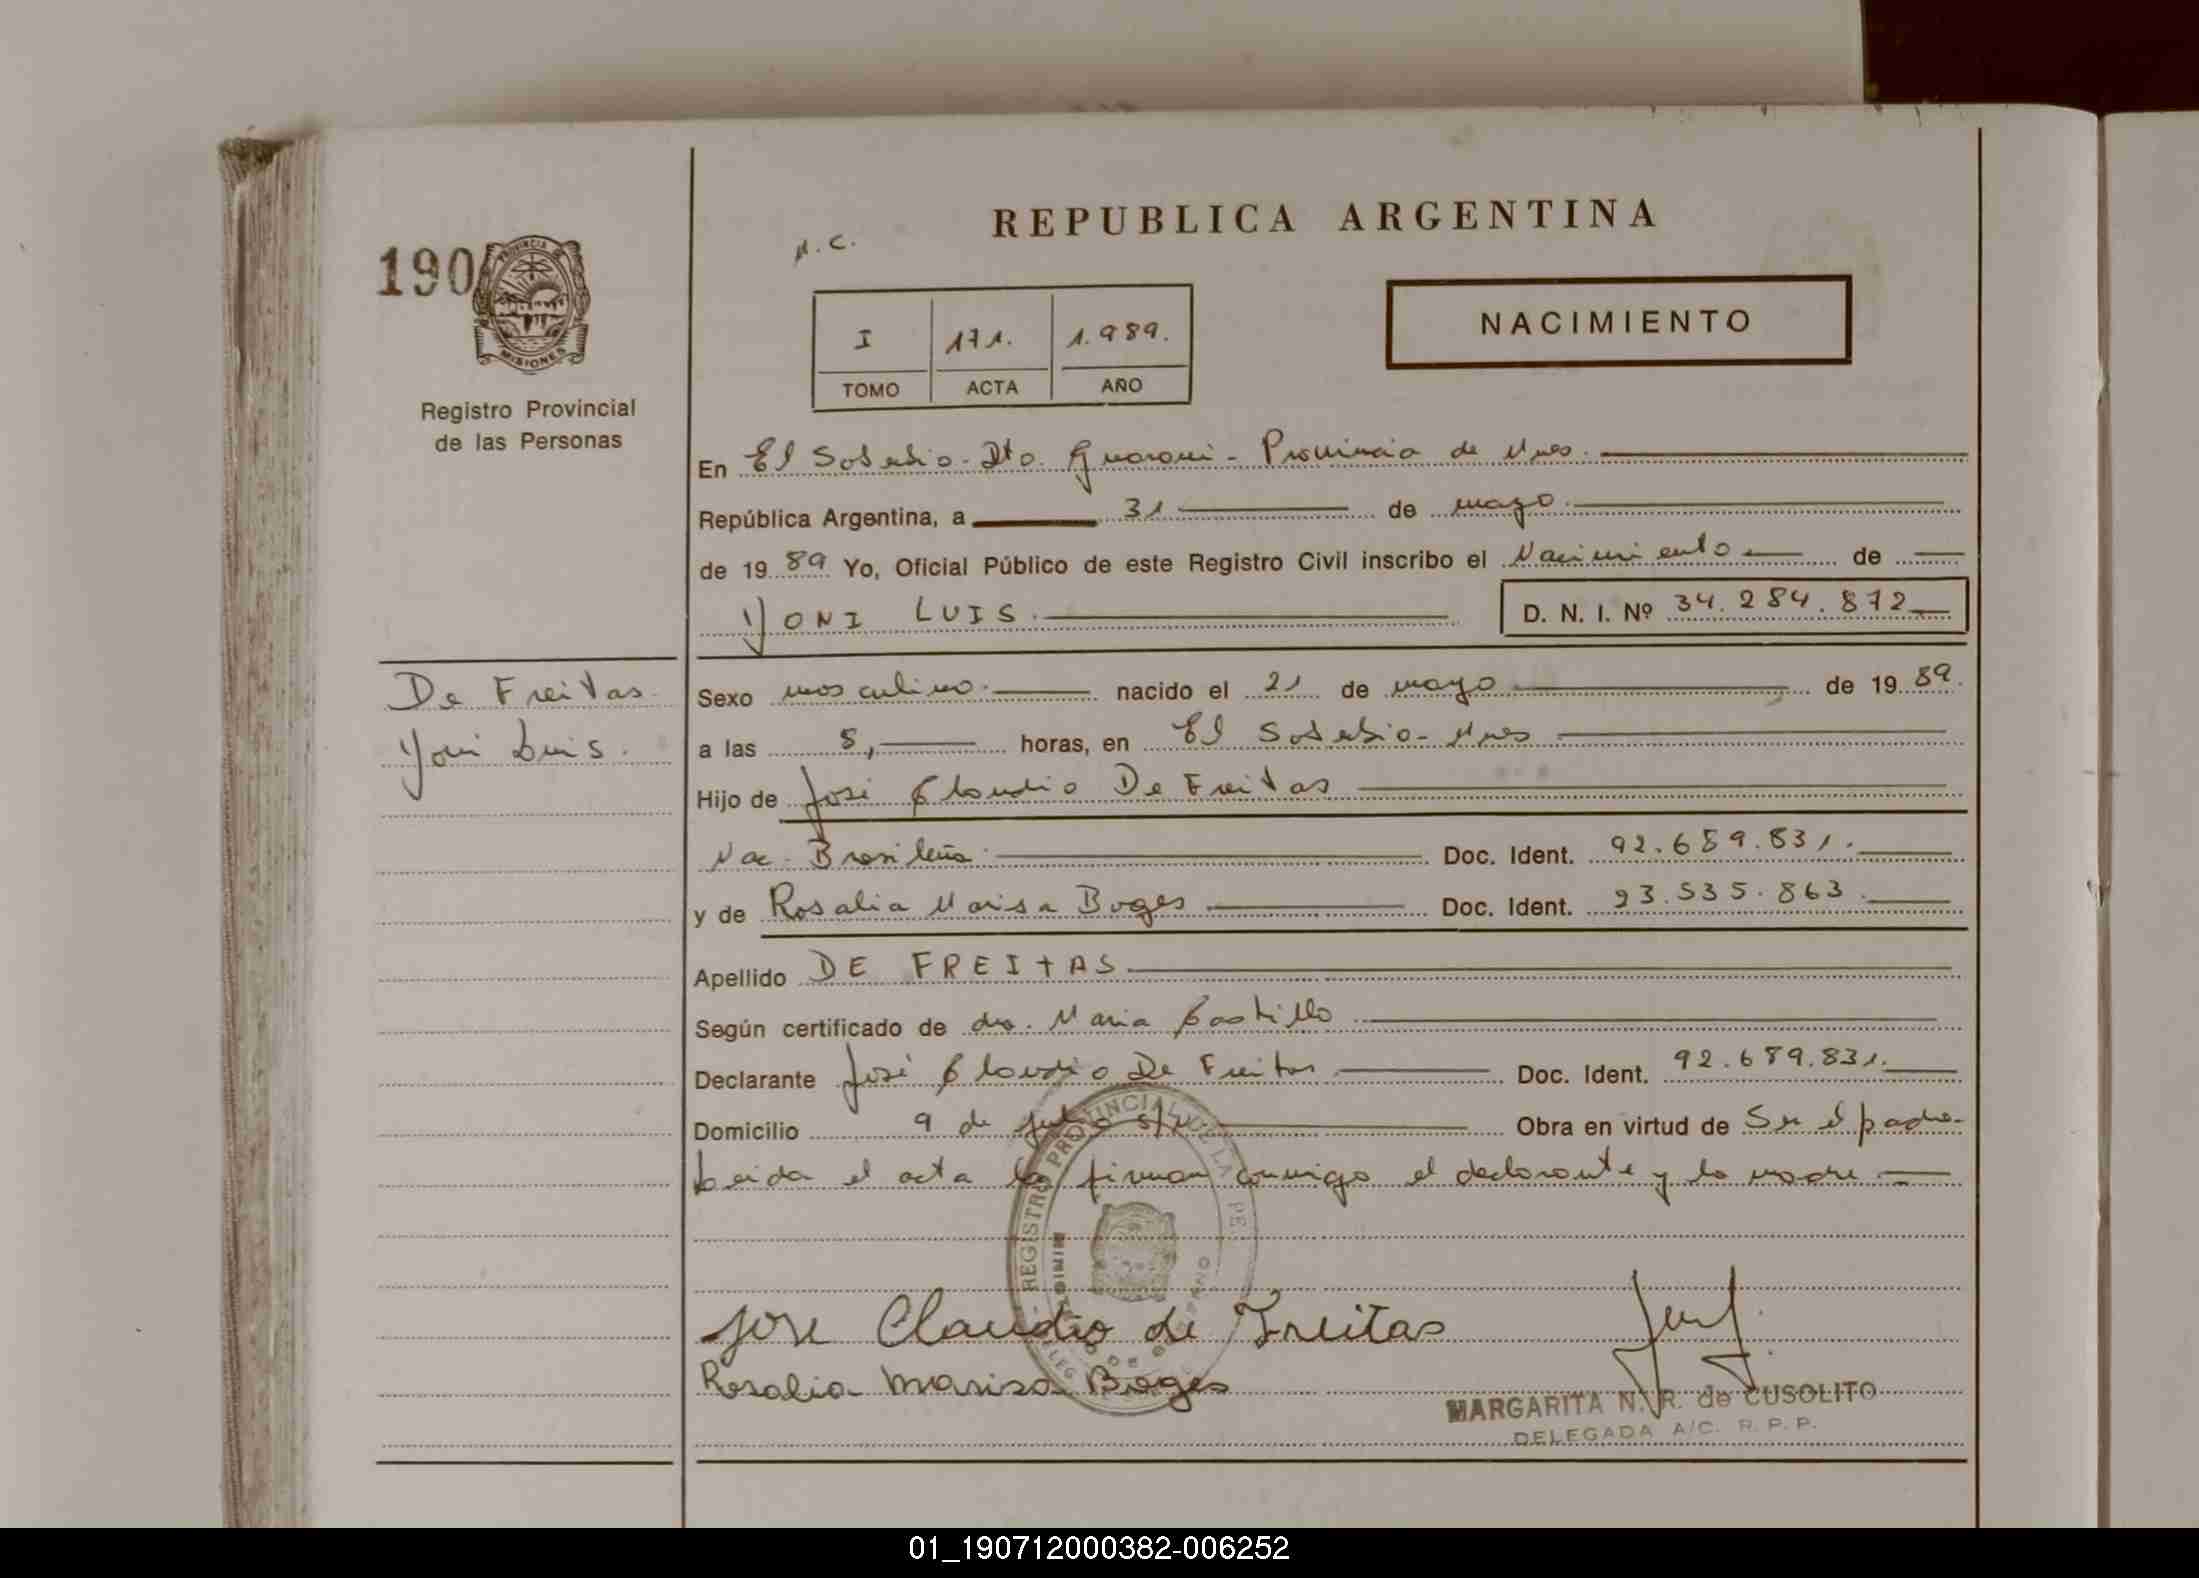 REPUBLICA ARGENTINA
N.C.
190
PROVINCIA DE MISIONES
I 171. 1.989.
TOMO ACTA AÑO
NACIMIENTO
Registro Provincial
de las Personas
En El Soberbio - Dto. Guaraní - Provincia de Mnes.
República Argentina, a 31 de mayo.
de 19 89 Yo, Oficial Público de este Registro Civil inscribo el Nacimiento de
YONI LUIS. D. N. I. Nº 34.284.872
De Freitas.
Yoni Luis.
Sexo masculino. nacido el 21 de mayo de 19 89.
a las 5, horas, en El Soberbio - Mnes
Hijo de José Claudio De Freitas
Nac. Brasileña. Doc. Ident. 92.689.831.
y de Rosalia Marisa Boges Doc. Ident. 93.535.863.
Apellido DE FREITAS
Según certificado de dra. Maria Castillo
Declarante José Claudio De Freitas Doc. Ident. 92.689.831.
Domicilio 9 de Julio s/n Obra en virtud de Ser el padre-
Leida el acta la firman conmigo el declarante y la madre
REGISTRO PROVINCIAL DE LA PE
Jose Claudio de Freitas
Rosalia Marisa Boges
MARGARITA N. R. de CUSOLITO
DELEGADA A/C. R. P. P.
01_190712000382-006252